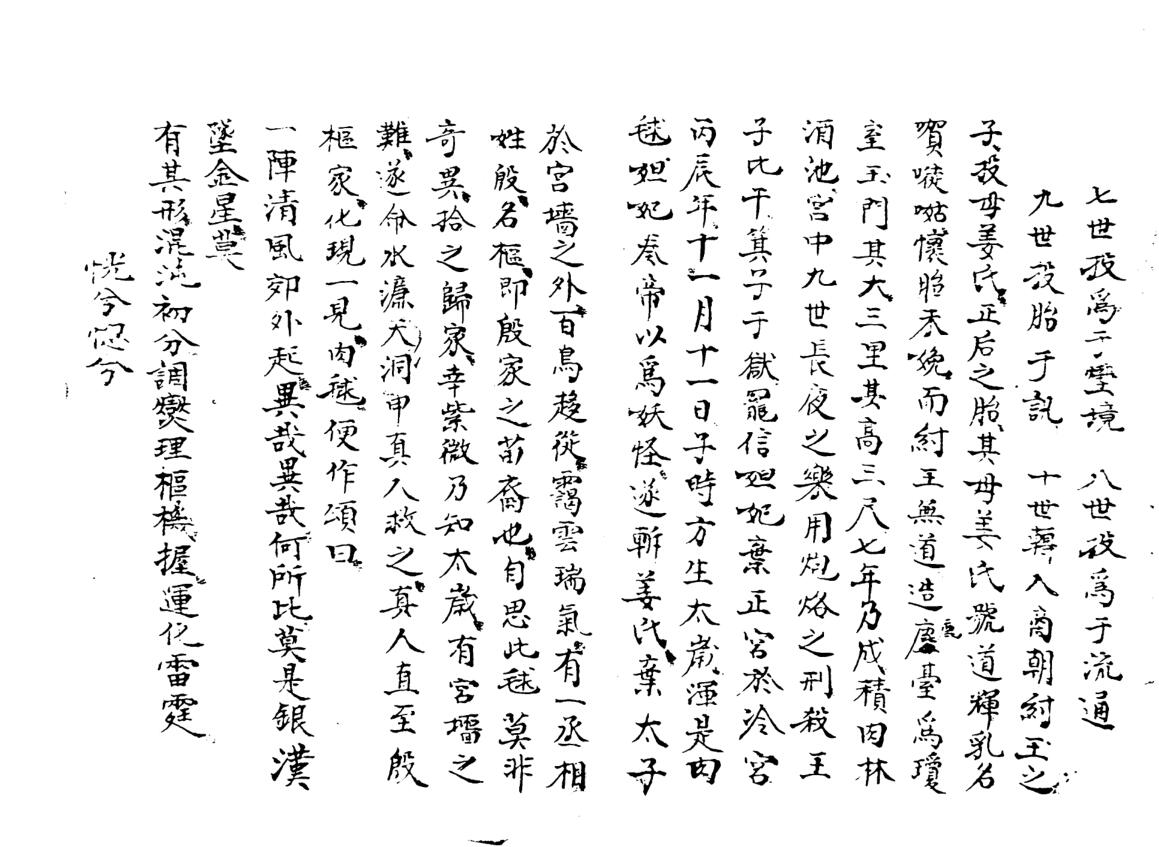 七世投爲于聖境　八世投爲于流通
九世投胎于訊　十世轉入商朝紂王之
子投母姜氏正后之胎其母姜氏號道輝乳名
賀唛姑懷胎未娩而紂王無道造廘鹿臺爲瓊
室玉門其大三里其高三尺七年乃成積肉林
酒池宮中九世長夜之樂用炮烙之刑殺王
子比干箕子于獄寵信妲妃棄正宮於冷宮
丙辰年十一月十一日子時方生太歲渾是肉
毬妲妃奏帝以爲妖怪遂斬姜氏棄太子
於宮墻之外百鳥趍從靄雲瑞氣有一丞相
姓殷名樞即殷家之苗裔也自思此毬莫非
奇異拾之歸家幸紫微乃知太歲有宮墻之
難遂命水濂大洞申真人救之真人直至殷
樞家化現一見肉毬便作頌曰
一陣清風郊外起異哉異哉何所比莫是銀漢
墜金星莫
有其形混沌初分調爕理樞機握運化雷霆
恍兮惚兮